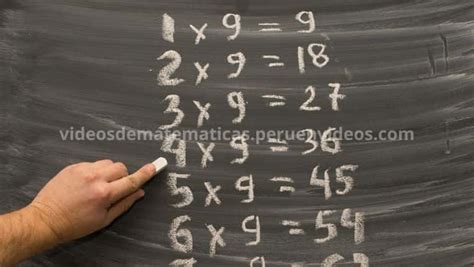 1 x 9 = 9
2 x 9 = 18
3 x 9 = 27
videosdematematicas.peruenvideos.com
4 x 9 = 36
5 x 9 = 45
6 x 9 = 54
7 x 9 =